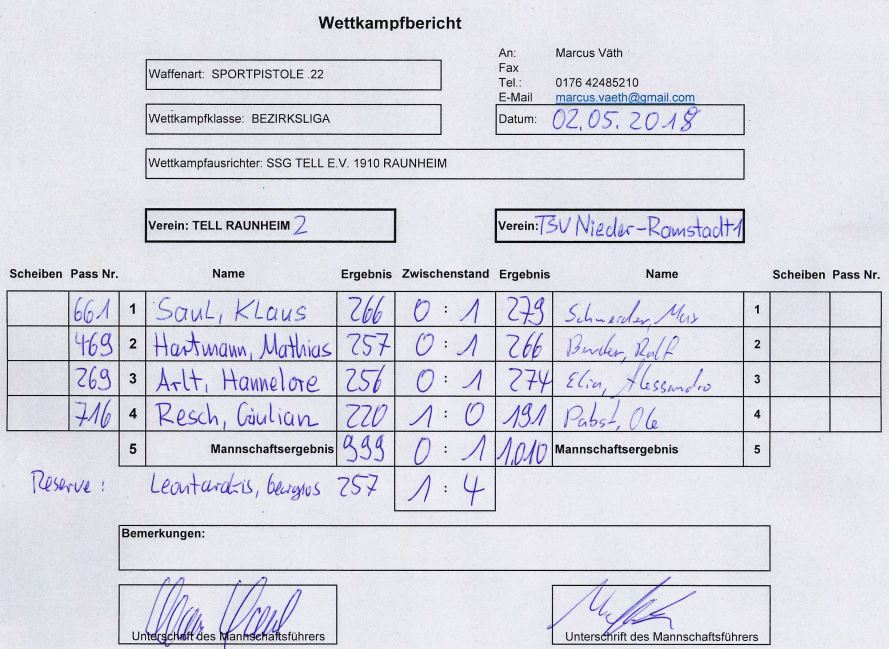 Wettkampfbericht
An: Marcus Väth
Fax
Waffenart: SPORTPISTOLE .22
Tel.: 0176 42485210
E-Mail marcus.vaeth@gmail.com
Wettkampfklasse: BEZIRKSLIGA
Datum: 02.05.2018
Wettkampfausrichter: SSG TELL E.V. 1910 RAUNHEIM
Verein: TELL RAUNHEIM 2 Verein: TSV Nieder-Ramstadt 1
Scheiben Pass Nr. Name Ergebnis Zwischenstand Ergebnis Name Scheiben Pass Nr.
661 1 Saul, Klaus 266 0 : 1 279 Schneider, Max 1
469 2 Hartmann, Mathias 257 0 : 1 266 Bender, Ralf 2
269 3 Arlt, Hannelore 256 0 : 1 274 Elia, Alessandro 3
716 4 Resch, Giulian 220 1 : 0 191 Pabst, Ole 4
5 Mannschaftsergebnis 999 0 : 1 1.010 Mannschaftsergebnis 5
Reserve: 257 1 : 4
Bemerkungen:
Unterschrift des Mannschaftsführers Unterschrift des Mannschaftsführers